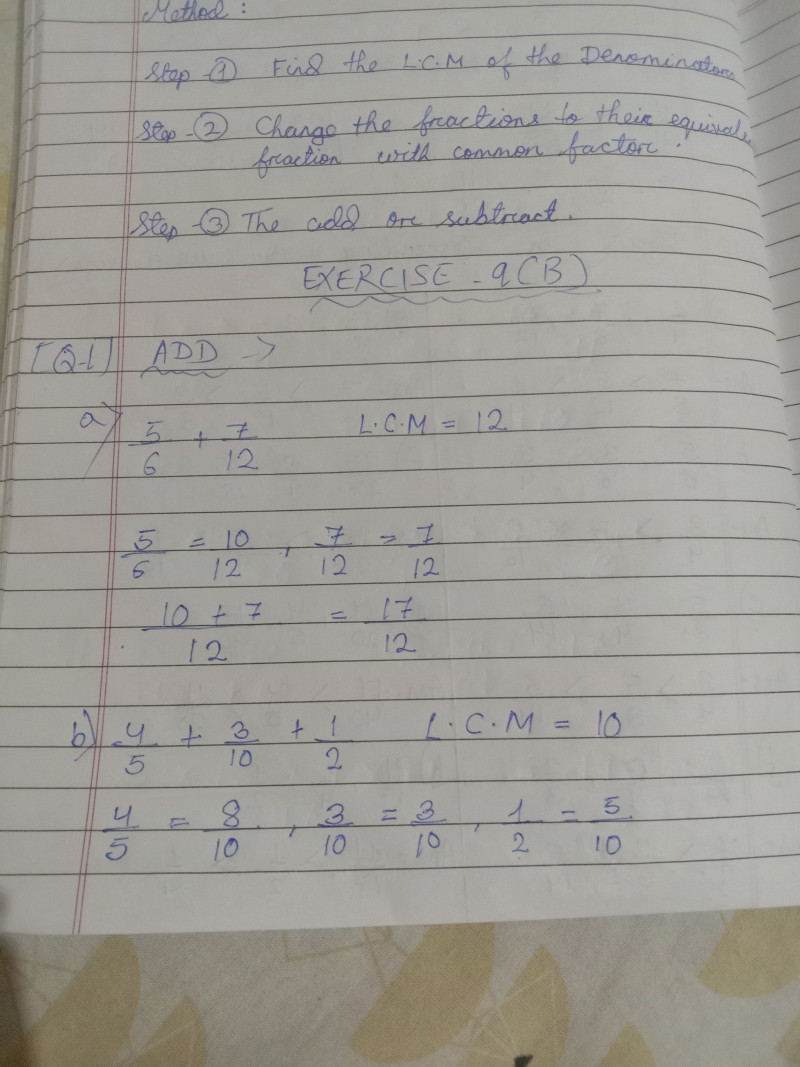 Method :
Step -① Find the L.C.M of the Denominators
Step -② Change the fractions to their equivale
fraction with common factor.
Step -③ The add or subtract.
EXERCISE - 9(B)
[Q-1] ADD →
a) 5/6 + 7/12 L.C.M = 12
5/6 = 10/12 , 7/12 = 7/12
10 + 7/12 = 17/12
b) 4/5 + 3/10 + 1/2 L.C.M = 10
4/5 = 8/10 , 3/10 = 3/10 , 1/2 = 5/10